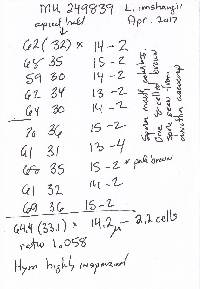 MU 249839 L. imshaugii
apical hold Apr. 2017
62 (32) × 14-2
68 35 15-2
59 30 14-2
62 34 13-2
64 30 14-2
70 36 15-2
61 31 13-4
68 35 15-2 * pale brown
61 32 14-2
69 36 15-2
64.4 (33.1) × 14.2 µ - 2.2 cells
ratio 1.058
Hym highly inspersed
Spores mostly
One 8-celled brown
same areas from
another ascocarp